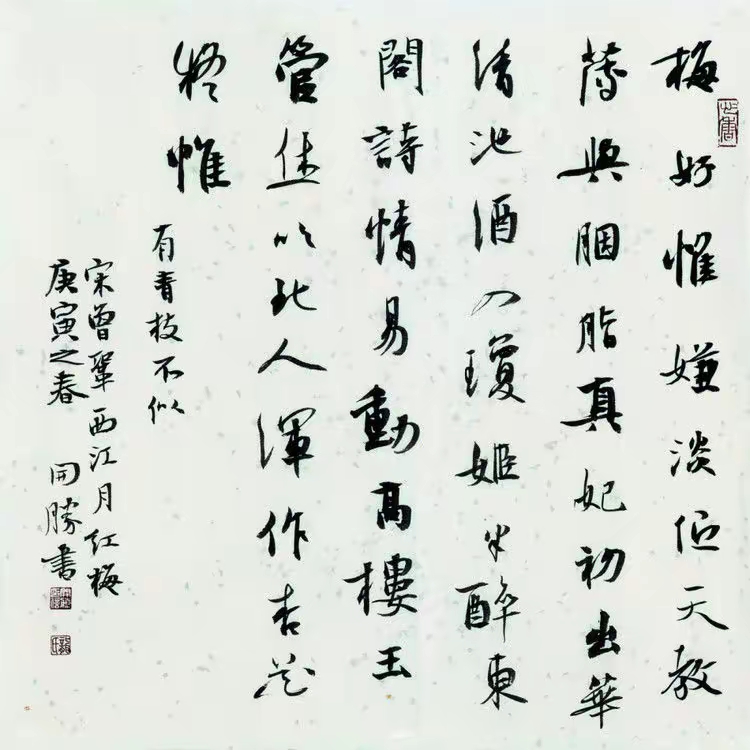 梅好惟嫌淡伫天教
薄與胭脂真妃初出華
清池酒入瓊姬半醉東
閣詩情易動高樓玉
管休吹北人渾作杏花
疑惟
有青枝不似
宋曾鞏西江月紅梅
庚寅之春 開勝書